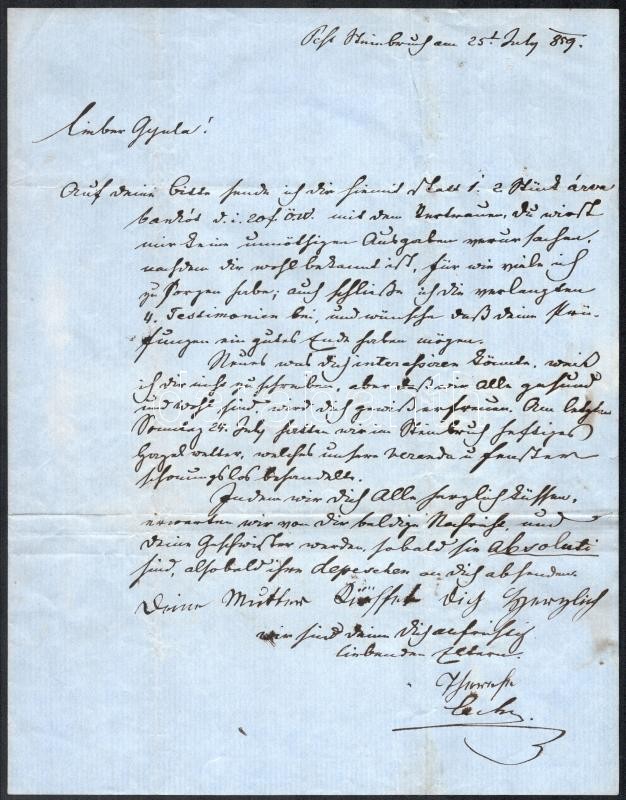 Pest Steinbruch am 25t July 859.
Lieber Gyula!
Auf deine bitte sende ich dir hiemit statt 1. 2 Stück árva
bankós d. i. 20 f öw. mit dem Vertrauen, du wirst
mir keine unnöthigen Ausgaben verursachen,
nachdem dir wohl bekannt ist, für wie viele ich
zu sorgen habe; auch schließe ich die verlangten
4. Testimonien bei, und wünsche daß deine Prü-
fungen ein gutes Ende haben mögen.
Neues was dich interessiren könnte, weiß
ich dir nicht zu schreiben, aber daß wir Alle gesund
und wohl sind, wird dich gewiß erfreuen. Am letzten
Sonntag 24. July hatten wir im Steinbruch heftiges
Hagelwetter, welches unsere Veranda u fenster
schonungslos behandelte.
Indem wir dich Alle herzlich küssen,
erwarten wir von dir baldige Nachricht, und
deine Geschwister werden, sobald sie Absoluti
sind, alsobald ihre depeschen an dich absenden.
Deine Mutter Küsset Dich Herzlich
wir sind deine dich aufrichtig
liebenden Eltern.
Therese